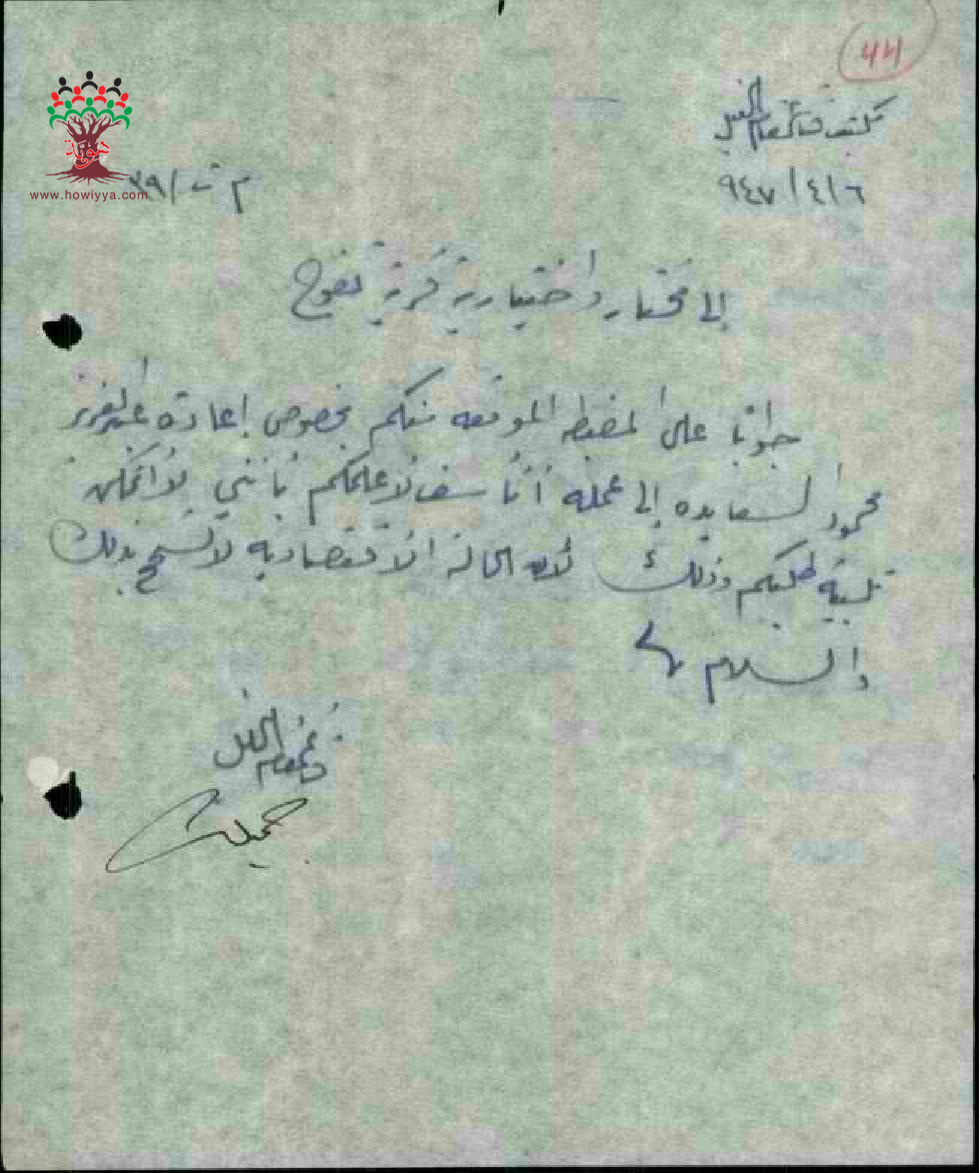 44
مكتب قائمقام الخليل
٩٤٧/٤/٦
م ت/٣٩
هوية
www.howiyya.com
إلى مختار واختيارية قرية تفوح
جوابا على المضبطه الموقعه منكم بخصوص إعادة عبد العزيز
محمود السعايده إلى عمله أنا سف لاعلمكم بانني لا اتمكن
تلبية طلبكم وذلك لأن الحالة الاقتصاديه لا تسمح بذلك
والسلام
قائمقام الخليل